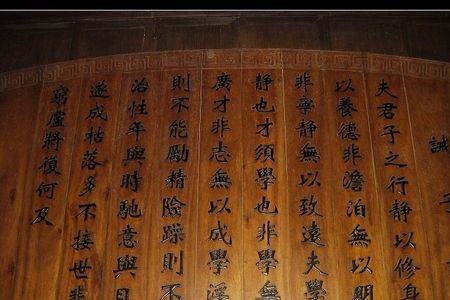 誡
夫君子之行静以修身
以養德非澹泊無以明
非寧静無以致遠夫學
静也才須學也非學無
廣才非志無以成學
則不能勵精險躁則不
治性年與時馳意與日
遂成枯落多不接世
窮廬將復何及